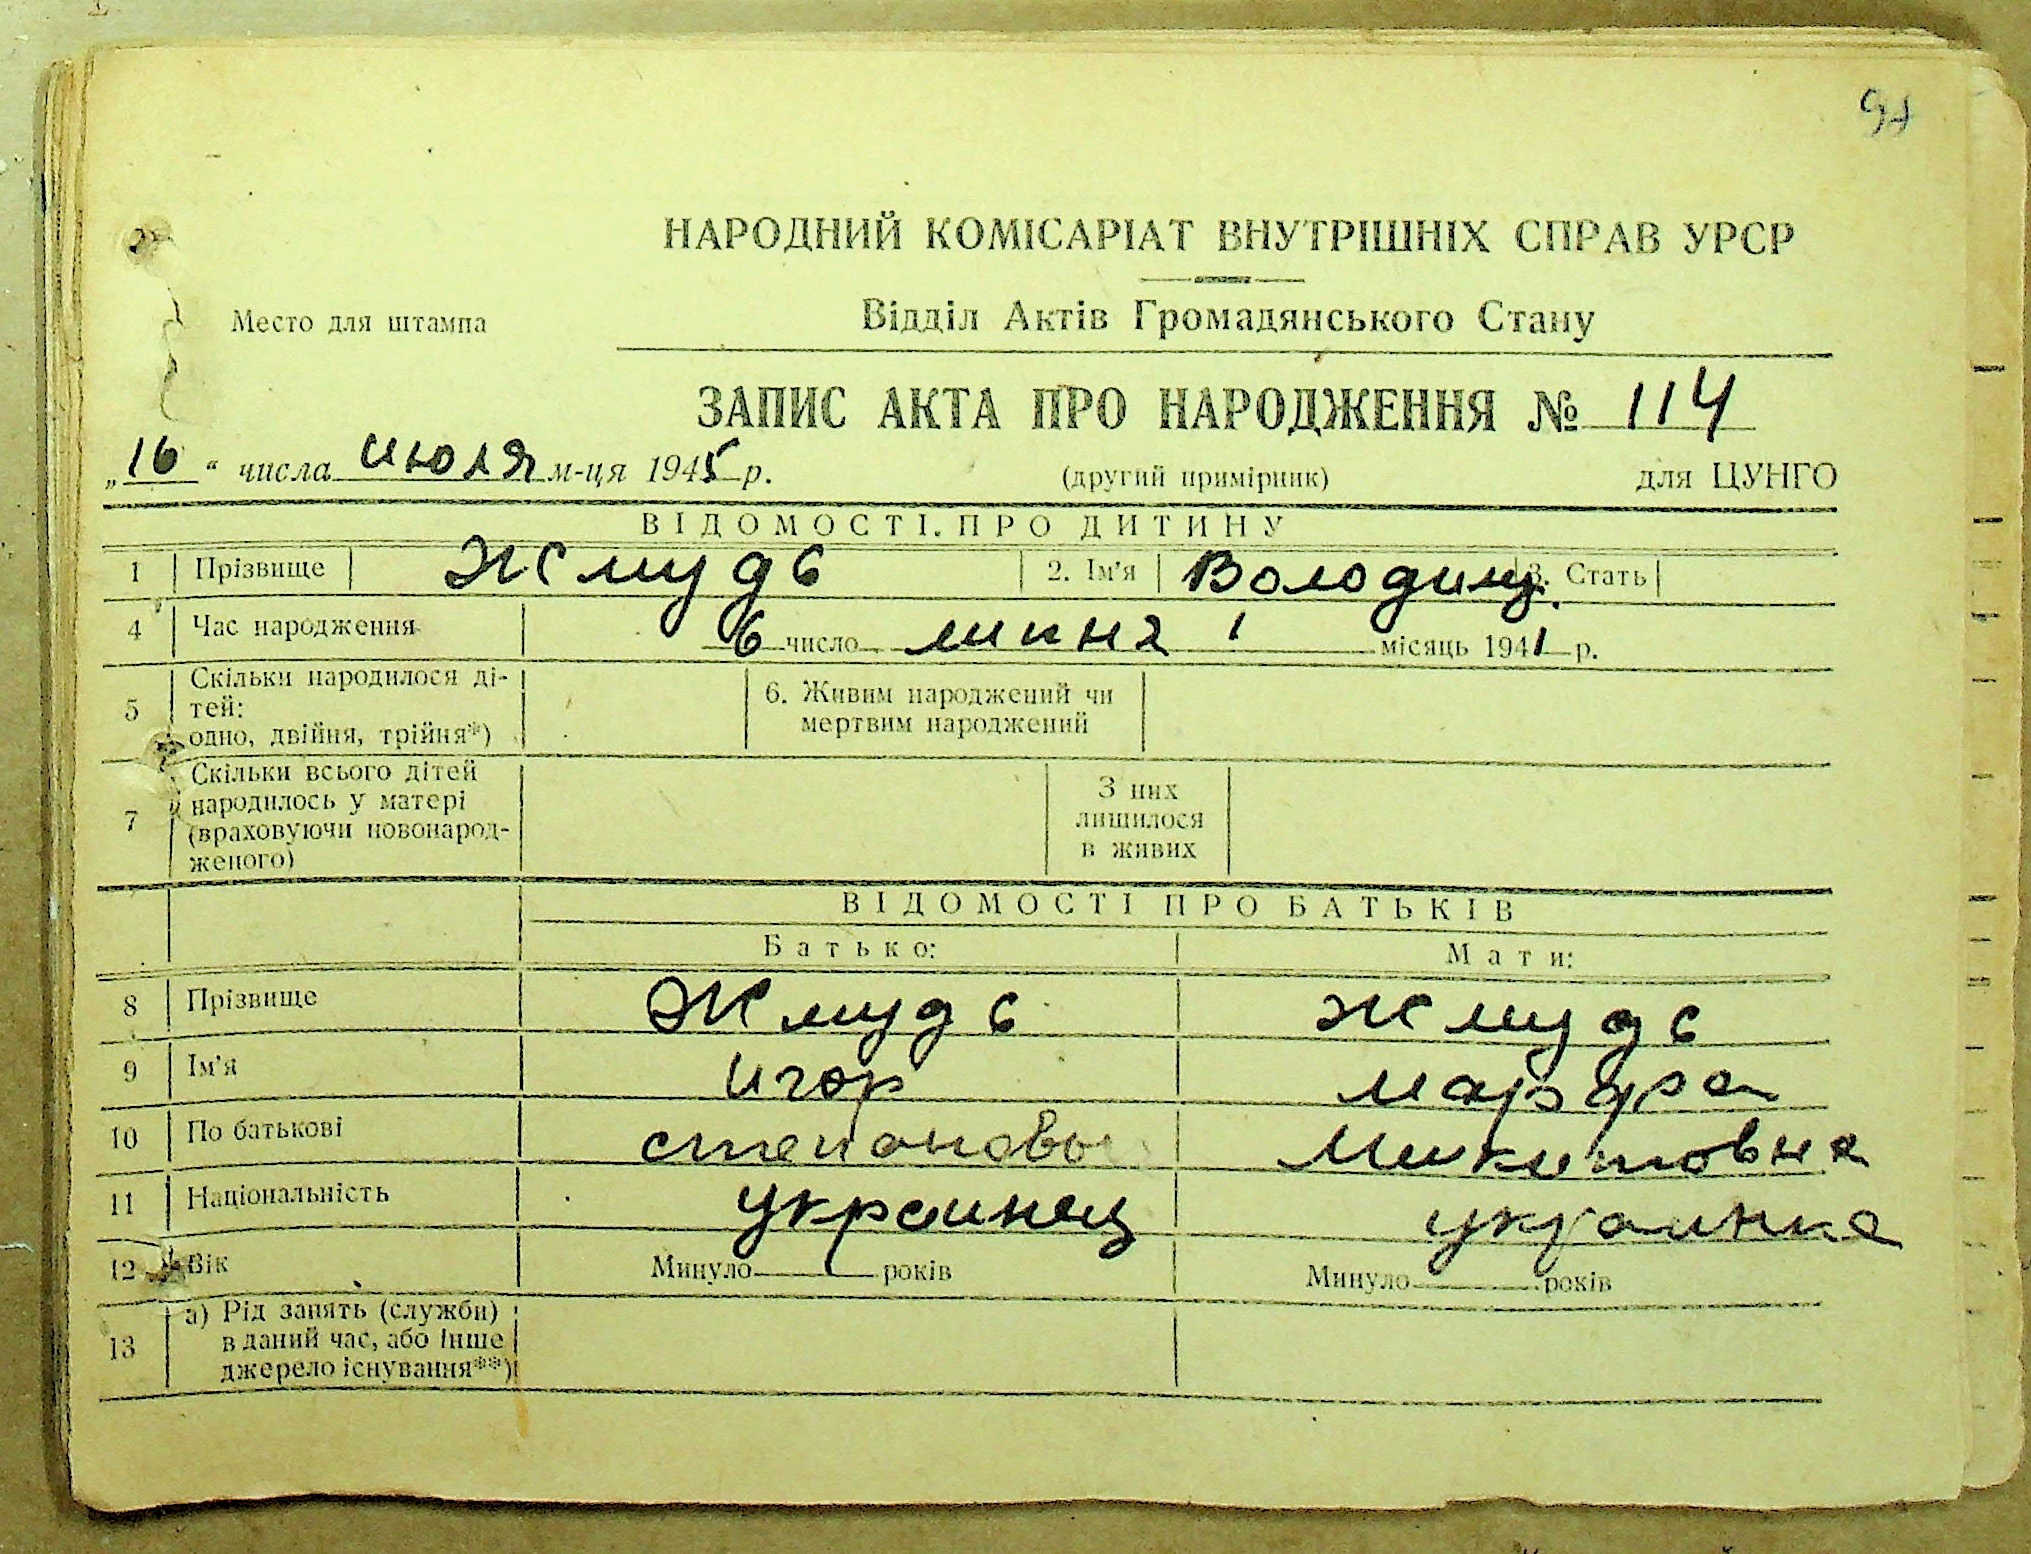 97
НАРОДНИЙ КОМІСАРІАТ ВНУТРІШНІХ СПРАВ УРСР
Место для штампа
Відділ Актів Громадянського Стану
ЗАПИС АКТА ПРО НАРОДЖЕННЯ № 114
„16“ числа июля м-ця 1945 р. (другий примірник) для ЦУНГО
ВІДОМОСТІ ПРО ДИТИНУ
1 Прізвище Жмудь 2. Ім'я Володим. 3. Стать
4 Час народження 6 число липня місяць 1941 р.
5 Скільки народилося ді-
тей:
одно, двійня, трійня*)
6. Живим народжений чи
мертвим народжений
7 Скільки всього дітей
народилось у матері
(враховуючи новонарод-
женого)
З них
лишилося
в живих
ВІДОМОСТІ ПРО БАТЬКІВ
Батько: Мати:
8 Прізвище Жмудь Жмудь
9 Ім'я Игор Марфа
10 По батькові Степанов Микитовна
11 Національність украинец украинка
12 Вік Минуло років Минуло років
13 а) Рід занять (служби)
в даний час, або інше
джерело існування**)